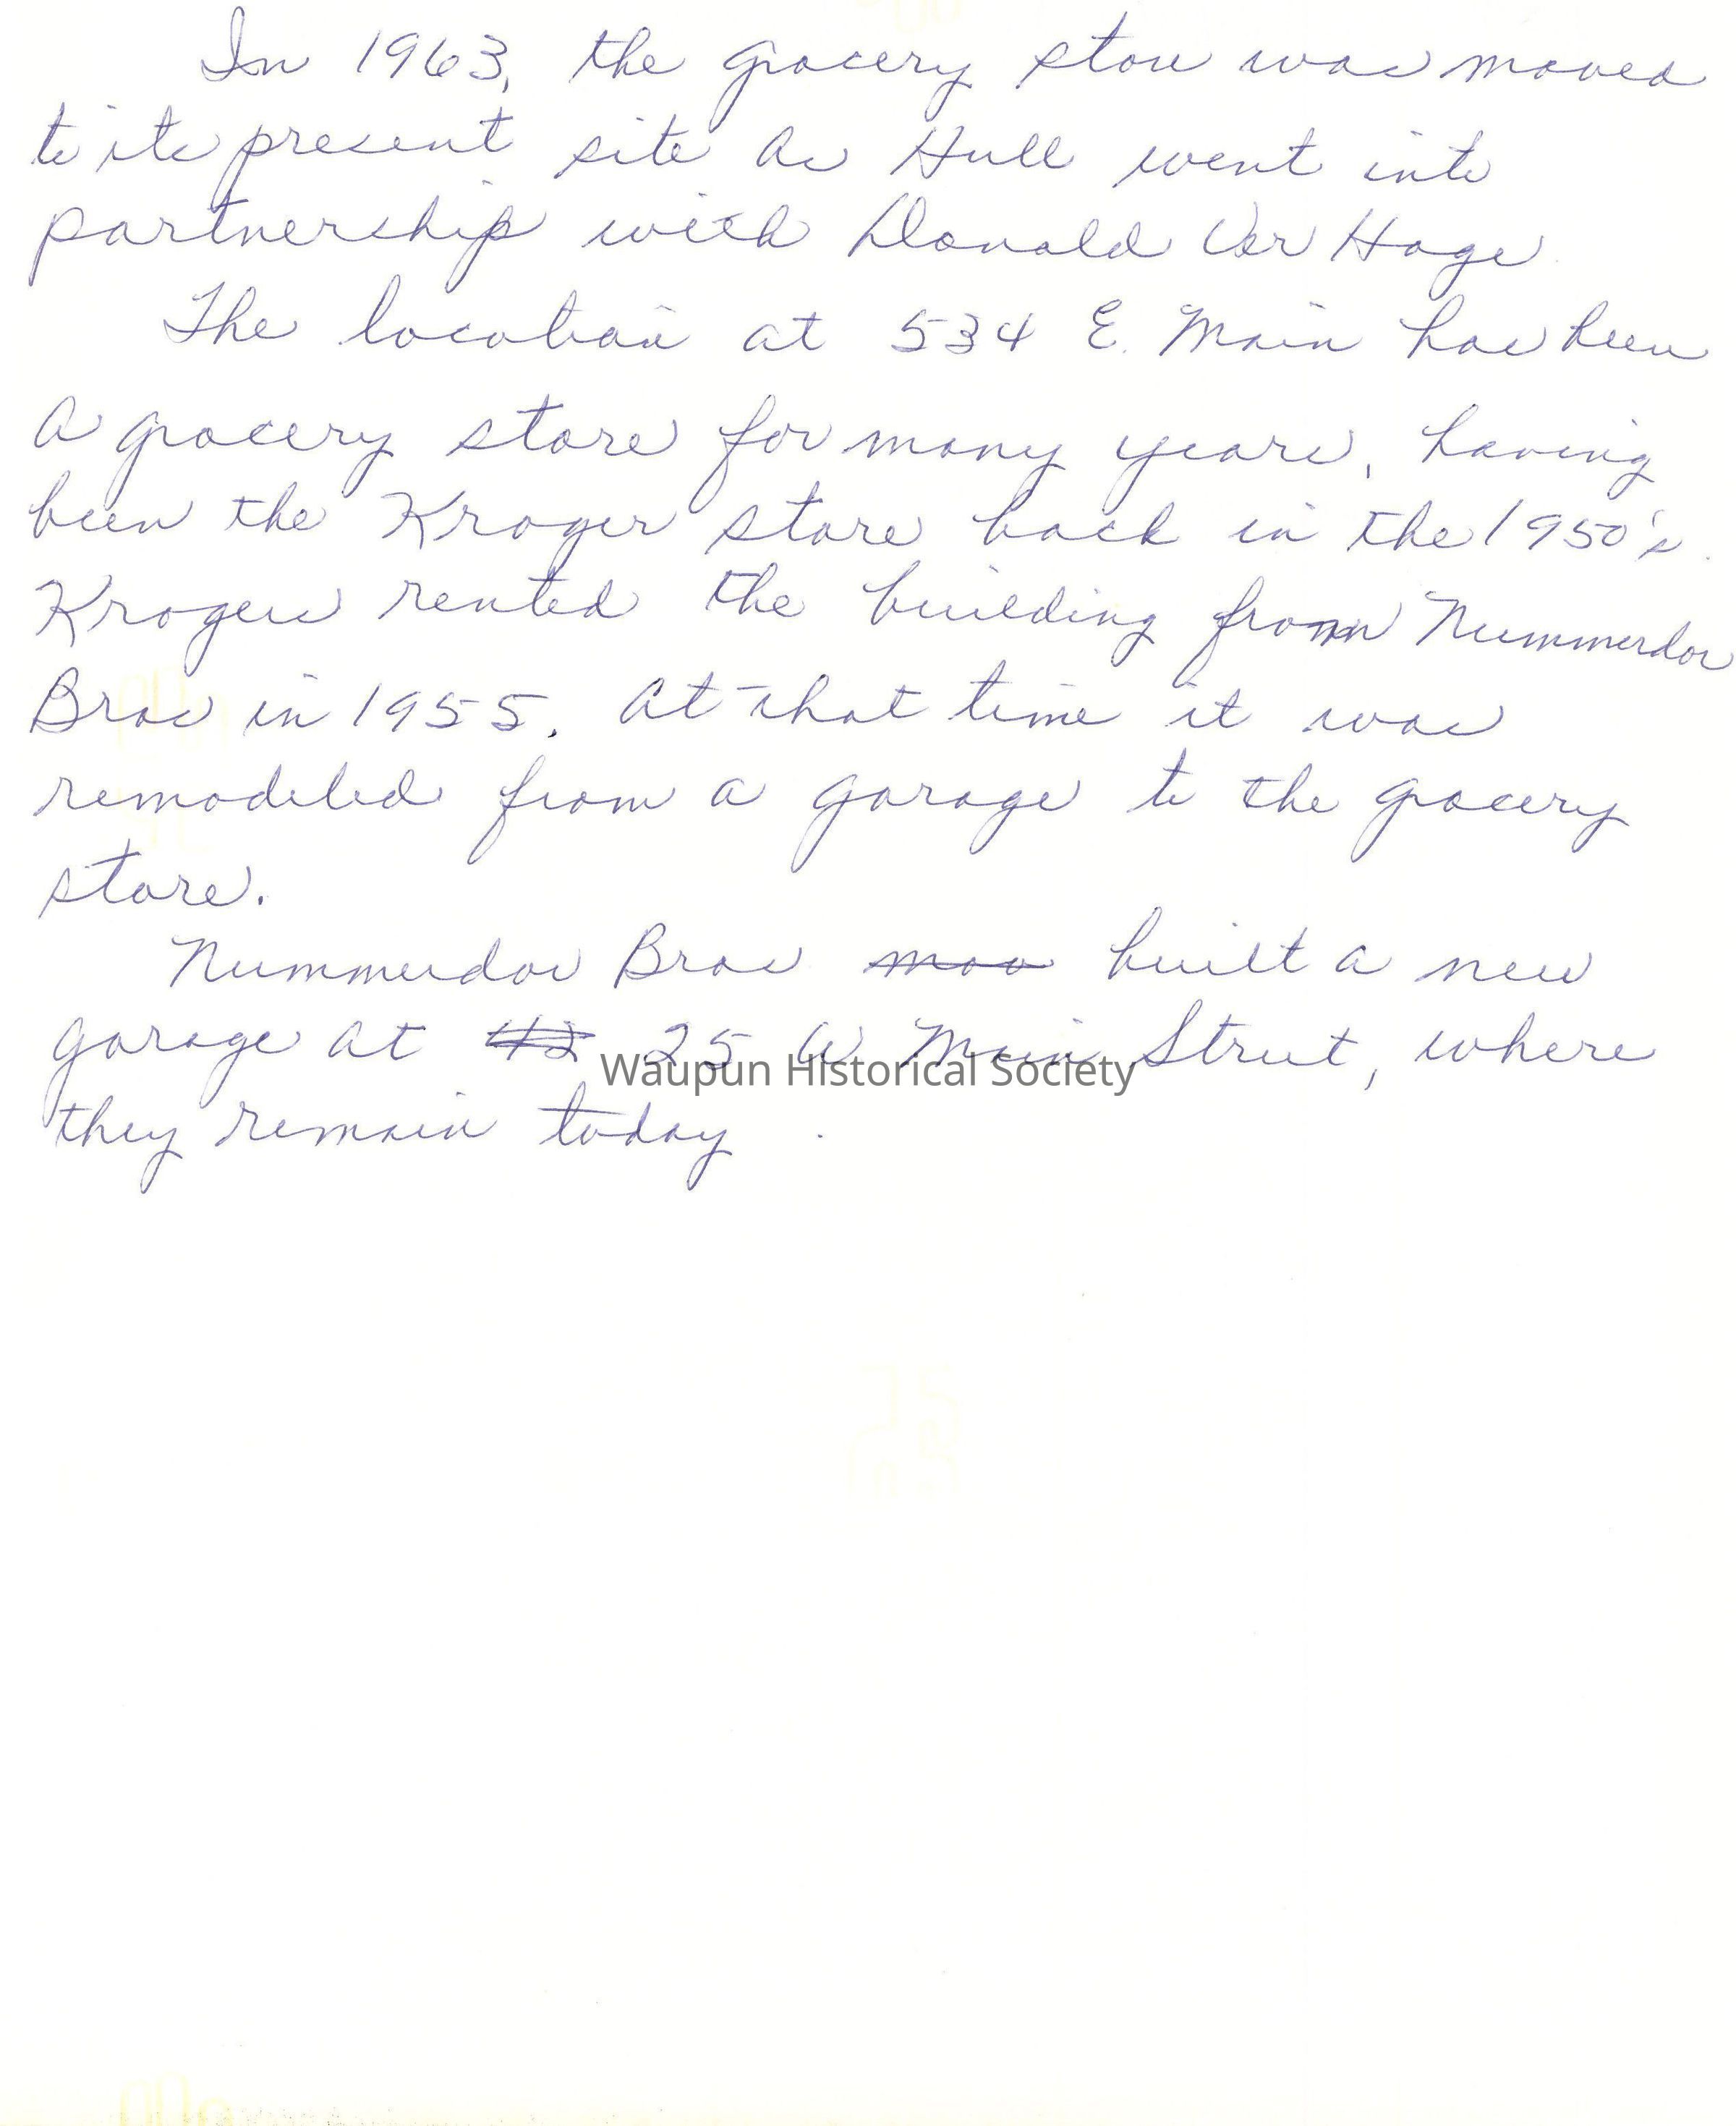 In 1963, the grocery store was moved
to its present site as Hull went into
partnership with Donald Ver Hage
The location at 534 E. Main has been
a grocery store for many years, having
been the Kroger store back in the 1950's.
Krogers rented the building from Nummerdor
Bros in 1955. At that time it was
remodeled from a garage to the grocery
store.
Nummerdor Bros moo built a new
garage at 42 25 W Main Street, where
they remain today.
Waupun Historical Society